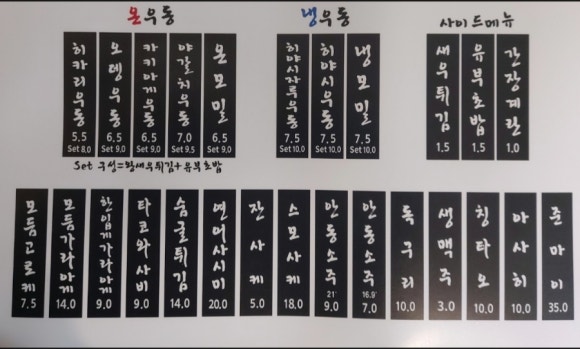 온우동
히카리우동 5.5 Set 8.0
오뎅우동 6.5 Set 9.0
카키아게우동 6.5 Set 9.0
야갈치우동 7.0 Set 9.5
온모밀 6.5 Set 9.0
Set 구성=왕새우튀김+유부초밥
냉우동
히야시자루우동 7.5 Set 10.0
히야시우동 7.5 Set 10.0
냉모밀 7.5 Set 10.0
사이드메뉴
새우튀김 1.5
유부초밥 1.5
간장계란 1.0
모듬고로케 7.5
모듬가라아게 14.0
한입게가라아게 9.0
타코와사비 9.0
숨굴튀김 14.0
연어사시미 20.0
잔사케 5.0
스모사케 18.0
안동소주 21' 9.0
안동소주 16.9' 7.0
독구리 10.0
생맥주 3.0
칭타오 10.0
아사히 10.0
준마이 35.0